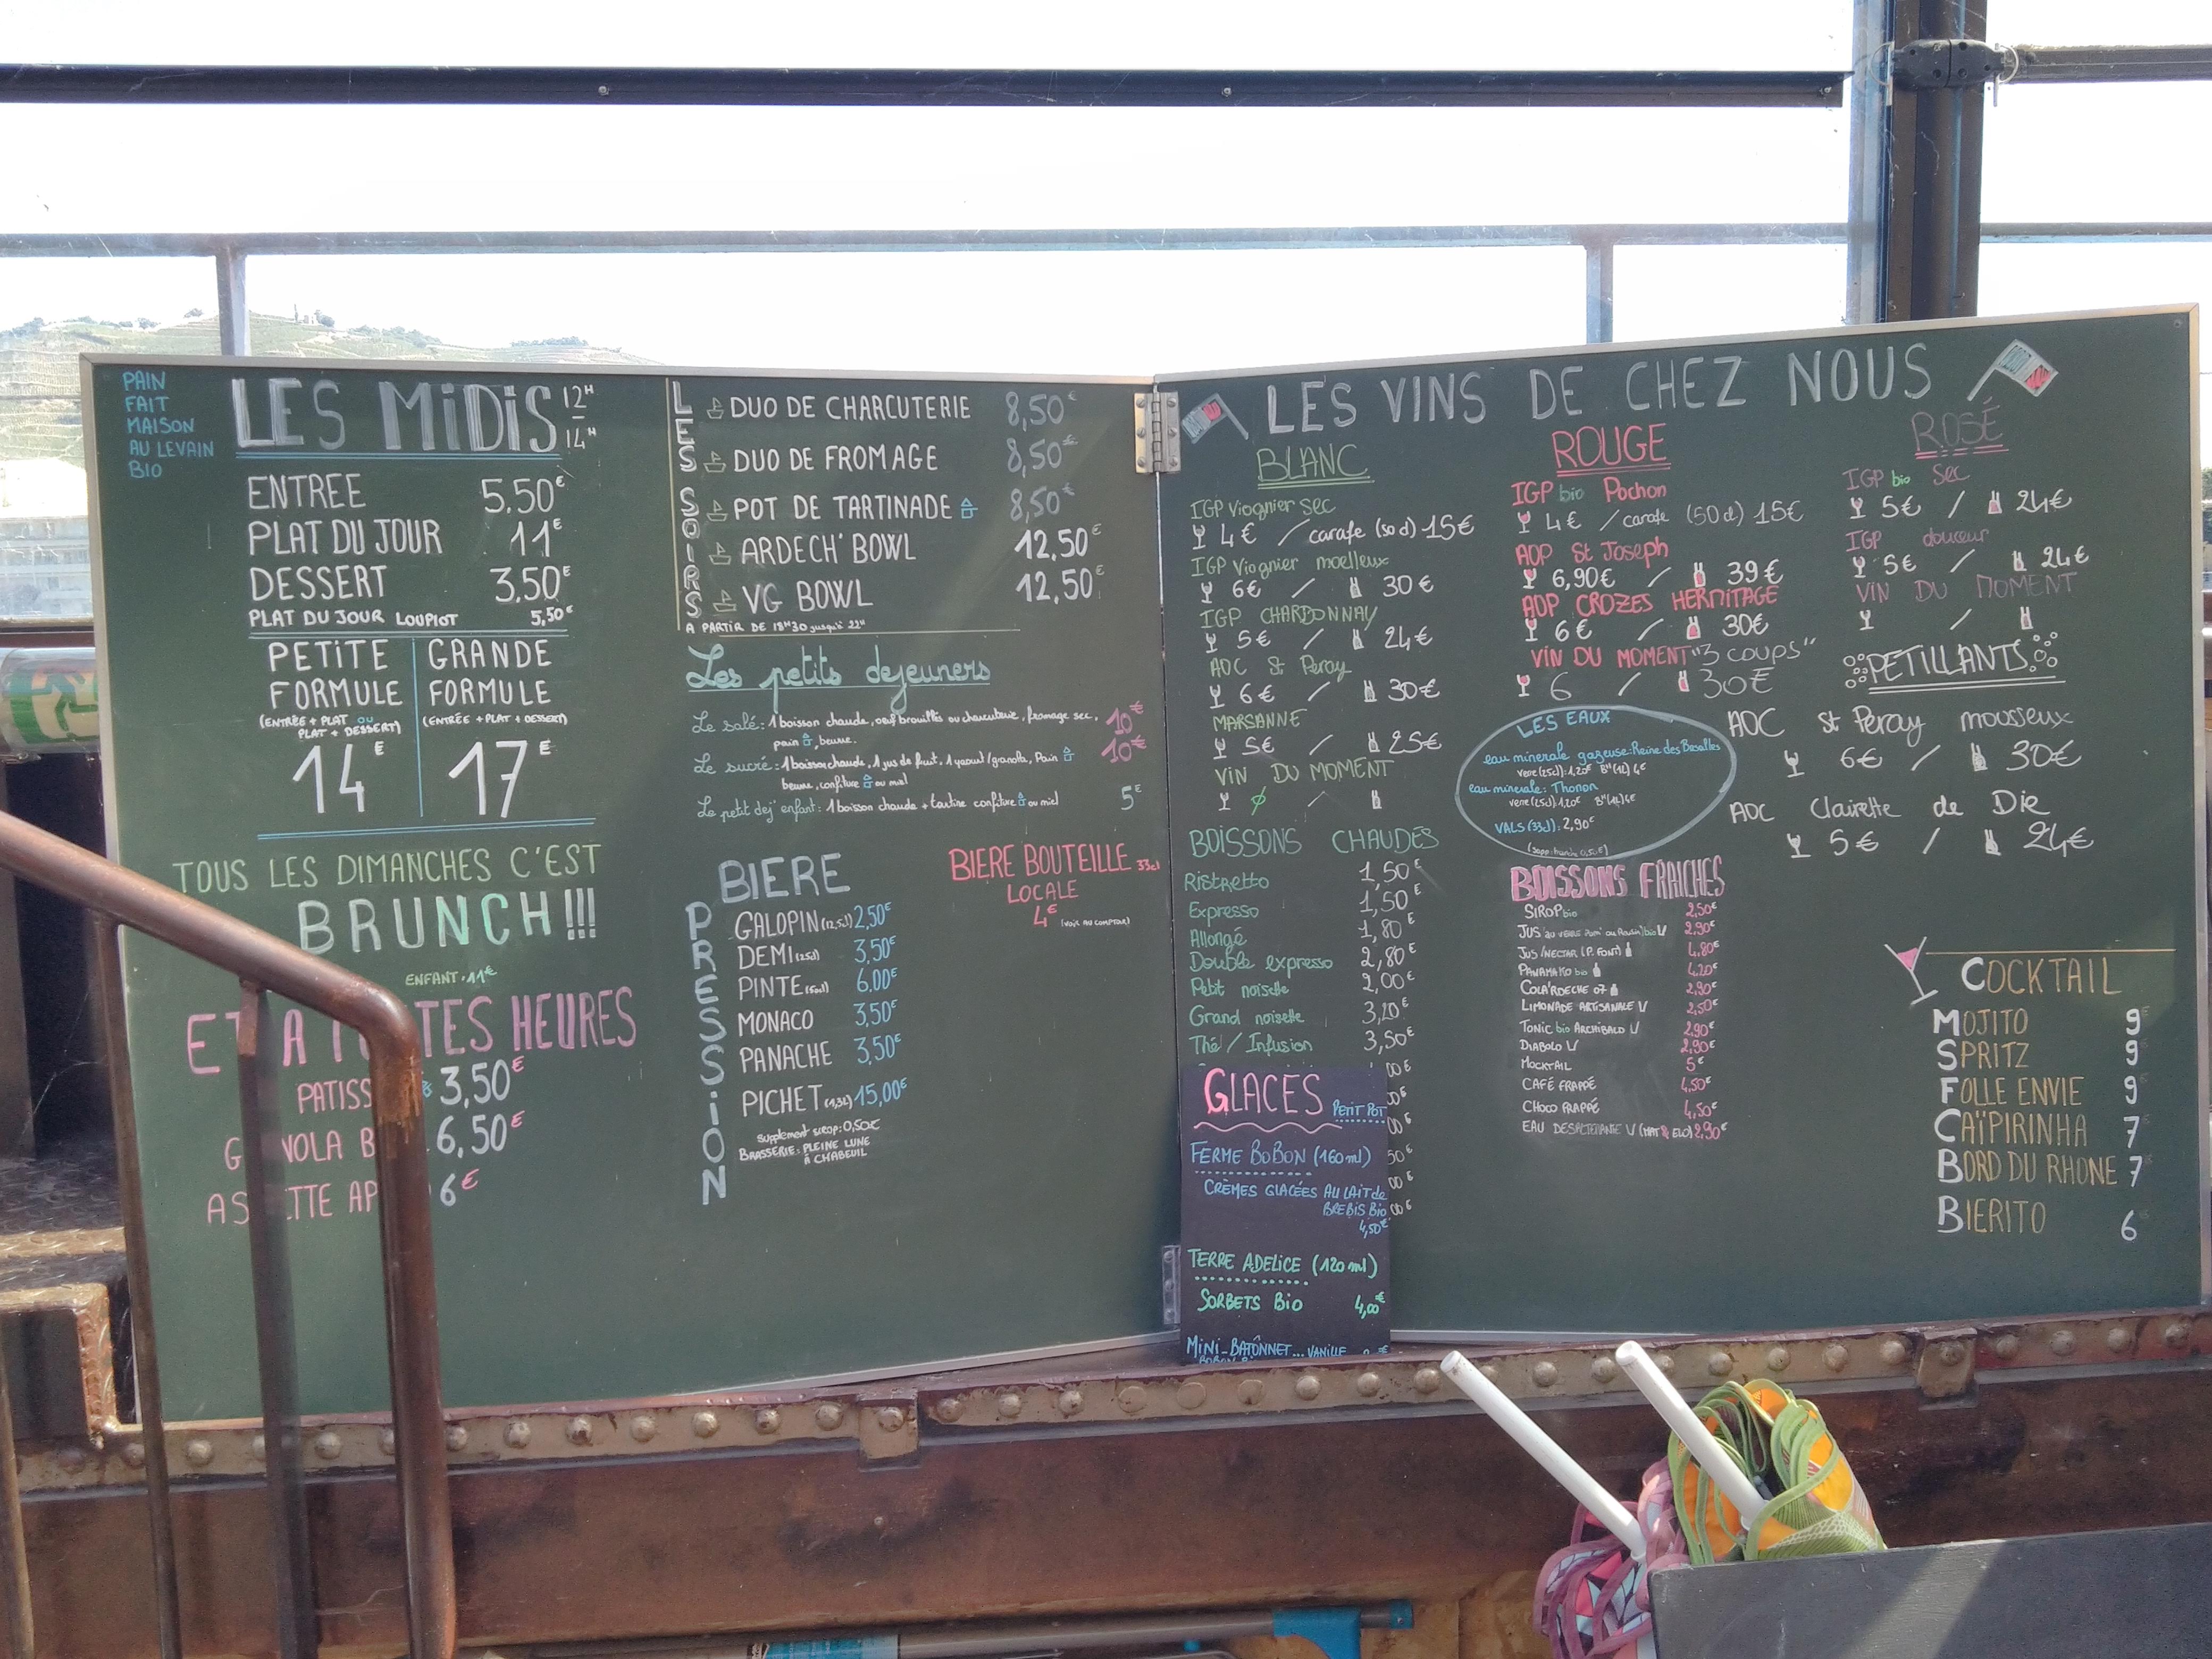 PAIN
FAIT
MAISON
AU LEVAIN
BIO
LES MiDiS 12H - 14H
ENTREE 5.50€
PLAT DU JOUR 11€
DESSERT 3.50€
PLAT DU JOUR LOUPIOT 5,50€
PETiTE FORMULE
(ENTRÉE + PLAT OU
PLAT + DESSERT)
14€
GRANDE FORMULE
(ENTRÉE + PLAT + DESSERT)
17€
TOUS LES DIMANCHES C'EST
BRUNCH!!!
ENFANT . 11€
HEURES
3,50€
6,50€
6€
LES SOIRS
DUO DE CHARCUTERIE 8,50€
DUO DE FROMAGE 8,50€
POT DE TARTINADE 8,50€
ARDECH' BOWL 12,50€
VG BOWL 12,50€
A PARTIR DE 18H30 jusqu'à 22H
Les petits dejeuners
Le salé: 1 boisson chaude, oeuf brouillés ou charcuterie, fromage sec, 10€
pain, beurre.
Le sucré: 1 boisson chaude, 1 jus de fruit, 1 yaourt/granola, Pain 10€
beurre, confiture ou miel
Le petit dej' enfant: 1 boisson chaude + tartine confiture ou miel 5€
BIERE
PRESSiON
GALOPIN (12,5cl) 2,50€
DEMI (25cl) 3,50€
PINTE (50cl) 6.00€
MONACO 3,50€
PANACHE 3,50€
PICHET (1,5L) 15,00€
supplement sirop: 0,50€
BRASSERIE: PLEINE LUNE
À CHABEUIL
BIERE BOUTEILLE 33cl
LOCALE
4€ (VOIR AU COMPTOIR)
LES VINS DE CHEZ NOUS
BLANC
IGP Viognier sec
4€ / carafe (50cl) 15€
IGP Viognier moelleux
6€ / 30€
IGP CHARDONNAY
5€ / 24€
AOC St Peray
6€ / 30€
MARSANNE
5€ / 25€
VIN DU MOMENT
/
ROUGE
IGP bio Pochon
4€ / carafe (50cl) 15€
AOP St Joseph
6,90€ / 39€
AOP CROZES HERMITAGE
6€ / 30€
VIN DU MOMENT "3 COUPS"
6 / 30€
ROSÉ
IGP bio Sec
5€ / 24€
IGP douceur
5€ / 24€
VIN DU MOMENT
/
PETILLANTS
AOC St Peray mousseux
6€ / 30€
AOC Clairette de Die
5€ / 24€
LES EAUX
eau minerale gazeuse: Reine des Basaltes
verre (25cl): 1,20€ Blle (1L) 4€
eau minerale: Thonon
verre (25cl): 1,20€ Blle (1L) 4€
VALS (33cl): 2,90€
BOISSONS CHAUDES
Ristretto 1,50€
Expresso 1,50€
Allongé 1,80€
Double expresso 2,80€
Petit noisette 2,00€
Grand noisette 3,20€
Thé / Infusion 3,50€
GLACES PETIT POT
FERME BOBON (160ml)
CRÈMES GLACÉES AU LAIT de
BREBIS BIO
4,50€
TERRE ADELICE (120ml)
SORBETS BiO 4,00€
MiNi-BATÔNNET... VANILLE
BOISSONS FRAICHES
SIROP bio 2,50€
2,90€
JUS/NECTAR (P. FONT) 4,80€
PANAMAKO bio 4,20€
COLA'RDECHE 07 2,90€
LIMONADE ARTISANALE 2,50€
TONIC bio ARCHIBALD 2,90€
DIABOLO 2,90€
MOCKTAIL 5€
CAFÉ FRAPPÉ 4,50€
CHOCO FRAPPÉ 4,50€
EAU DESALTERANTE 2,90€
COCKTAIL
MOJITO 9€
SPRITZ 9€
FOLLE ENVIE 9€
CAÏPIRINHA 7€
BORD DU RHONE 7€
BIERITO 6€